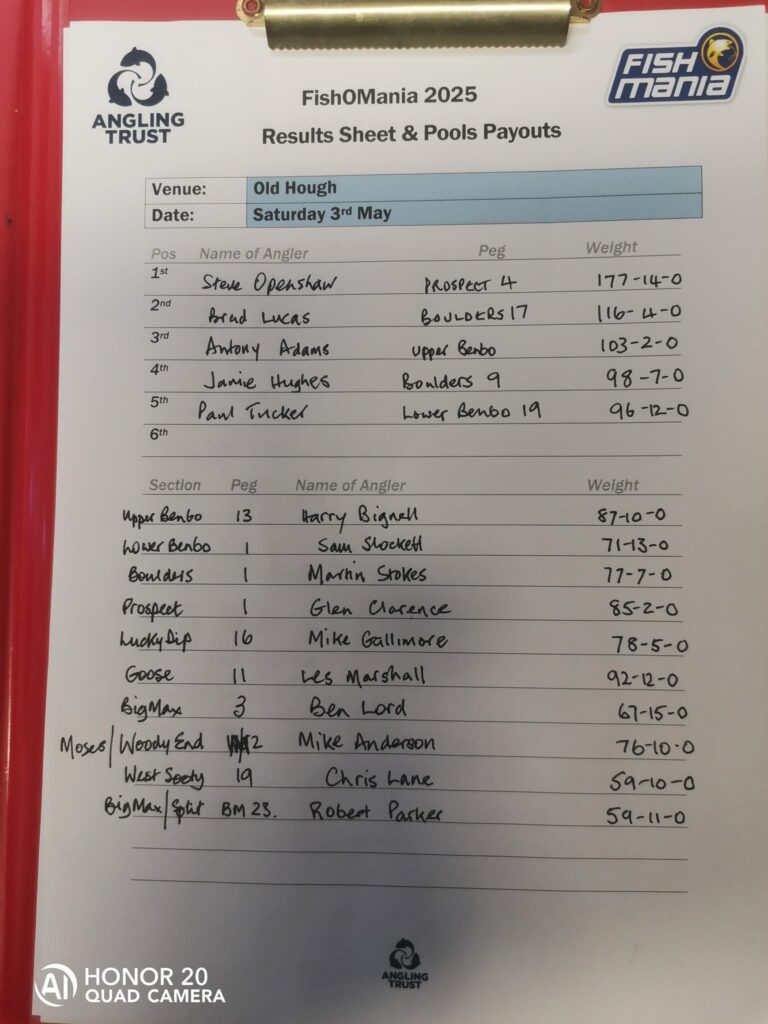 ANGLING
TRUST
FISH
mania
FishOMania 2025
Results Sheet & Pools Payouts
Venue: Old Hough
Date: Saturday 3rd May
Pos Name of Angler Peg Weight
1st Steve Openshaw PROSPECT 4 177-14-0
2nd Brad Lucas BOULDERS 17 116-4-0
3rd Antony Adams Upper Benbo 103-2-0
4th Jamie Hughes Boulders 9 98-7-0
5th Paul Tucker Lower Benbo 19 96-12-0
6th
Section Peg Name of Angler Weight
Upper Benbo 13 Harry Bignell 87-10-0
Lower Benbo 1 Sam 71-13-0
Boulders 1 Martin Stokes 77-7-0
Prospect 1 Glen Clarence 85-2-0
Lucky Dip 16 Mike Gallimore 78-5-0
Goose 11 Les Marshall 92-12-0
Big Max 3 Ben Lord 67-15-0
Moses/Woody End 2 Mike Anderson 76-10-0
West 19 Chris Lane 59-10-0
Big Max/Split BM 23. Robert Parker 59-11-0
ANGLING
TRUST
AI HONOR 20
QUAD CAMERA